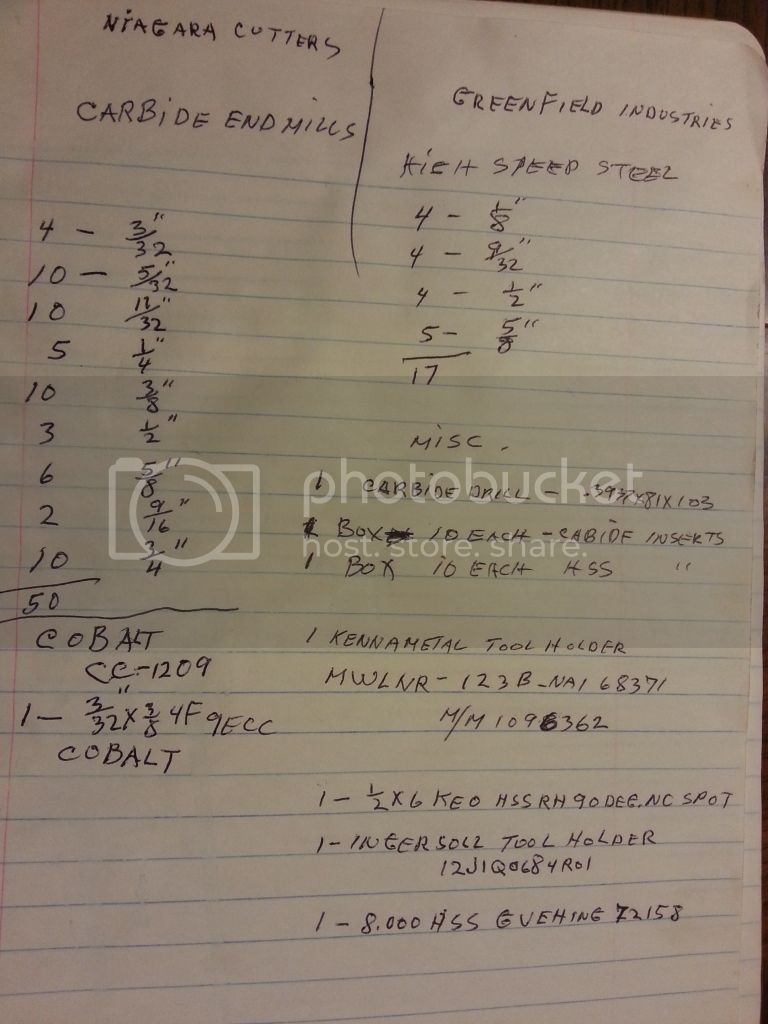 NIAGARA CUTTERS
CARBIDE ENDMILLS
4 - 3/32"
10 - 5/32"
10 11/32"
5 1/4"
10 3/8"
3 1/2"
6 5/8"
2 9/16"
10 3/4"
50
COBALT
CC-1209
1 - 3/32" x 3/8 4F 9ECC
COBALT
GREENFIELD INDUSTRIES
HIGH SPEED STEEL
4 - 1/8"
4 - 9/32"
4 - 1/2"
5 - 5/8"
17
MISC.
1 CARBIDE DRILL - .3937X81X103
BOX 10 EACH - CABIDE INSERTS
1 BOX 10 EACH HSS "
1 KENNAMETAL TOOL HOLDER
MWLNR - 123B-NA1 68371
M/M 1096362
1 - 1/2 X 6 KEO HSS RH 90 DEG. NC SPOT
1 - INGERSOLL TOOL HOLDER
12J1Q0684R01
1 - 8.000 HSS GUEHING 72158
photobucket
host. store. share.